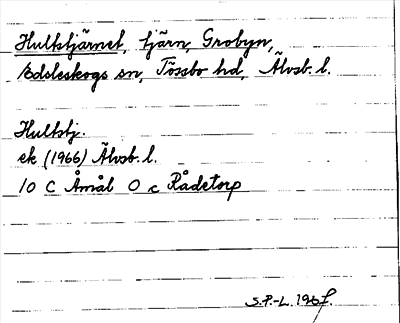 Hultstjärnet, tjärn, Grobyn,
Ödsleskogs sn, Tössbo hd, Älvsb. l.
Hultstj.
ek (1966) Älvsb. l.
10 C Åmål O c Rådetorp
S.P.-L. 1967.